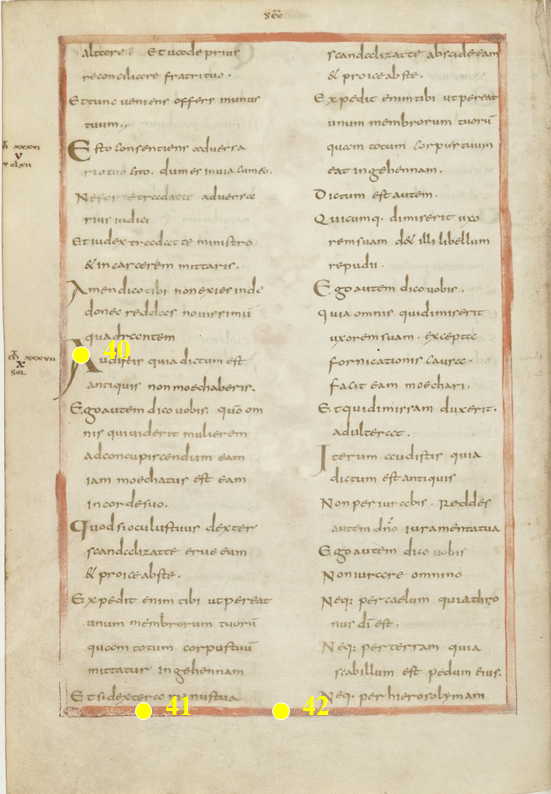 altare. Et uade prius
reconciliare fratri tuo.
Et tunc ueniens offers munus
tuum.
Esto consentiens aduersa
rio tuo cito. dum es in uia cum eo.
Ne forte tradat te aduersa
rius iudici
Et iudex tradat te ministro
& in carcerem mittaris.
Amen dico tibi non exies inde
donec reddas nouissimū
quadrantem
40
Audistis quia dictum est
antiquis non moechaberis.
Ego autem dico uobis. quō om
nis qui uiderit mulierem
ad concupiscendum eam
iam moechatus est eam
in corde suo.
Quod si oculus tuus dexter
scandalizat te erue eum
& proice abs te.
Expedit enim tibi ut pereat
unum membrorum tuorū
quam totum corpus tuū
mittatur in gehennam
Et si dextera manus tua
41
42
scandalizat te abscide eam
& proice abs te.
Expedit enim tibi ut pereat
unum membrorum tuorū
quam totum corpus tuum
eat in gehennam.
Dictum est autem.
Quicumq. dimiserit uxo
rem suam d& illi libellum
repudii.
Ego autem dico uobis.
quia omnis qui dimiserit
uxorem suam. excepta
fornicationis causa.
facit eam moechari.
Et qui dimissam duxerit.
adulterat.
Iterum audistis quia
dictum est antiquis
Non periurabis. Reddes
autem dn̄o iuramenta tua
Ego autem dico uobis
Non iurare omnino
Neq; per caelum quia thro
nus dī est.
Neq; per terram quia
scabillum est pedum eius.
Neq; per hierosolymam